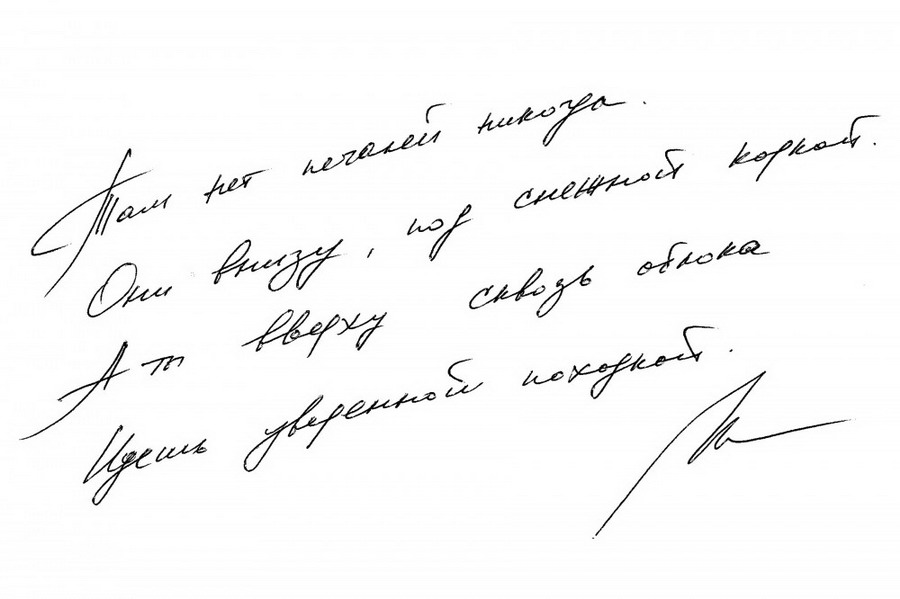 Там нет печалей никогда.
Они внизу, под снежной коркой.
А ты вверху сквозь облока
Идешь уверенной походкой.